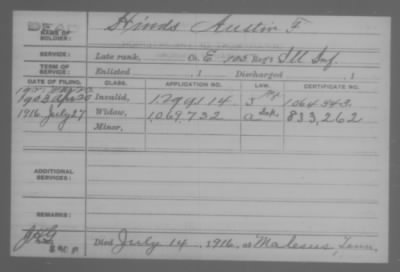 Hinds Austin F
NAME OF
SOLDIER:
SERVICE: Late rank, Co. E, 103 Reg't Ill Inf.
TERM OF
SERVICE: Enlisted , 1 Discharged , 1
DATE OF FILING. CLASS. APPLICATION NO. LAW. CERTIFICATE NO.
Invalid, 1299114 1064343
1916 July 27 Widow, 1,069,732 833,262
Minor,
ADDITIONAL
SERVICES:
REMARKS:
Died July 14, 1916, at Malesus, Tenn.